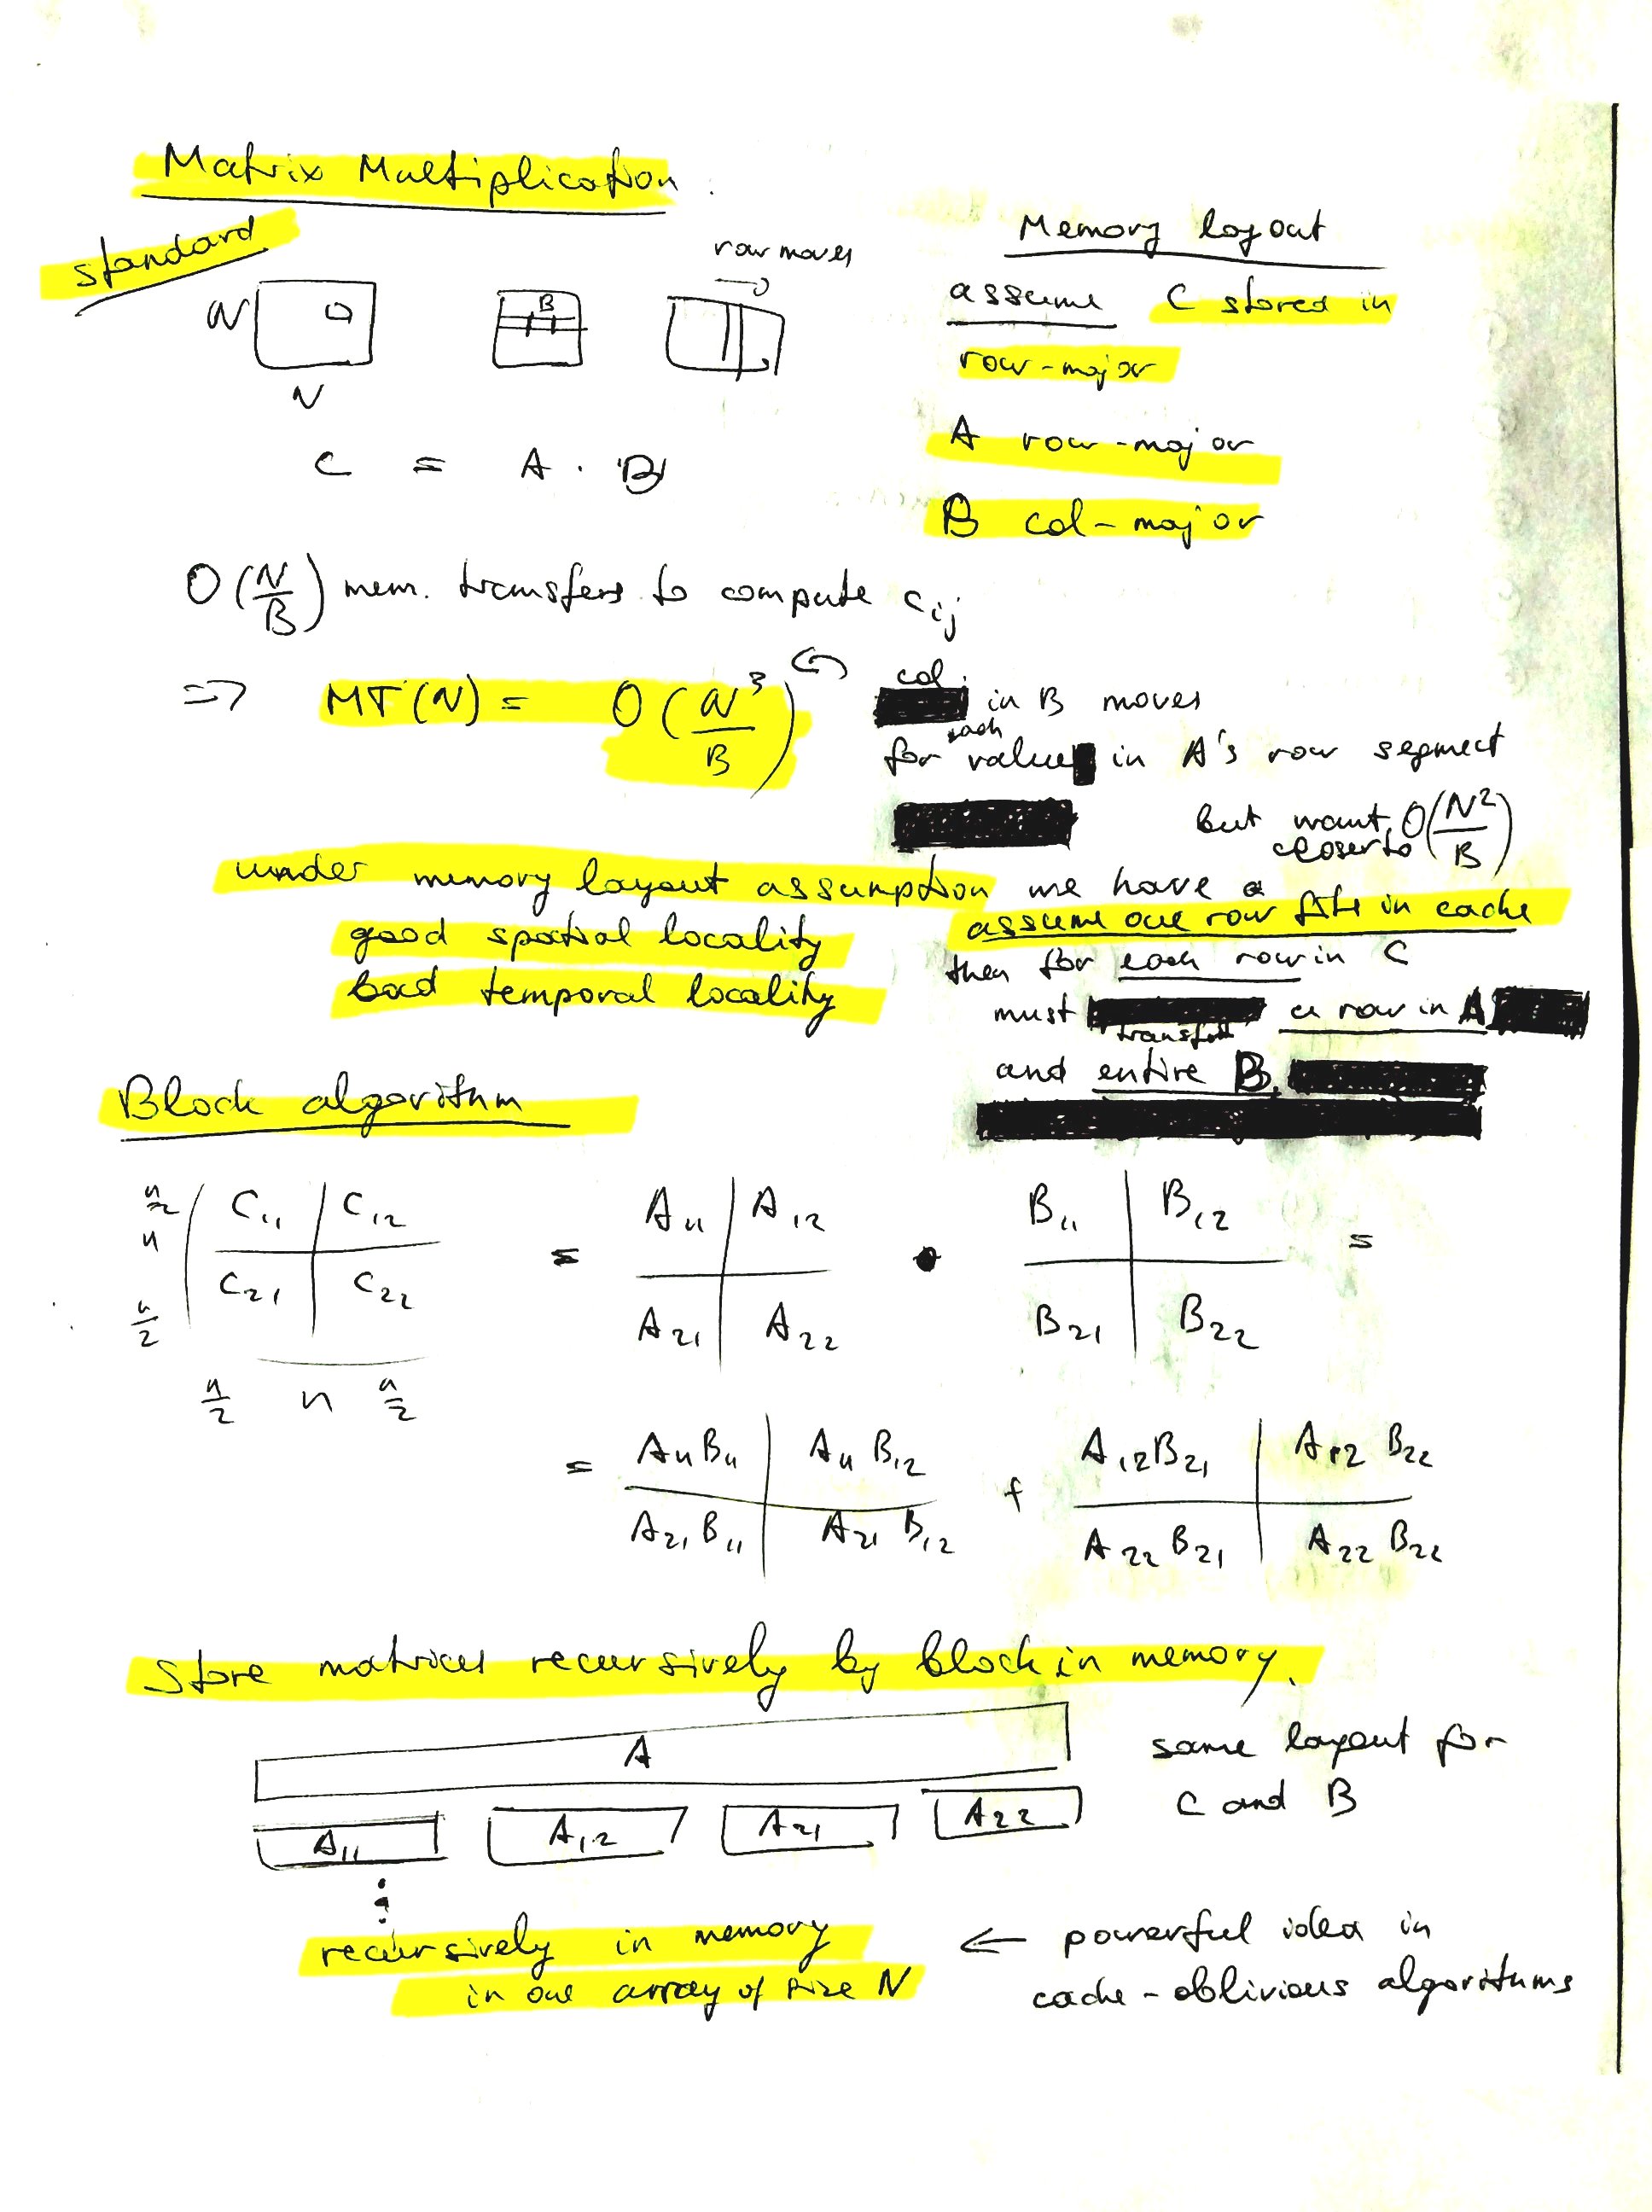 Matrix Multiplication.
standard
row moves
N
B
N
C = A . B
Memory layout
assume C stored in
row-major
A row-major
B col-major
O(N/B) mem. transfers to compute cij
=> MT(N) = O(N³/B)
col.
in B moves
for each value in A's row segment
but want closer to O(N²/B)
under memory layout assumption we have a
good spatial locality
bad temporal locality
assume one row fits in cache
then for each row in C
must transfer a row in A
and entire B.
Block algorithm
n/2 C11 C12 = A11 A12 • B11 B12 =
n
n/2 C21 C22 A21 A22 B21 B22
n/2 n n/2
= A11B11 A11 B12 + A12B21 A12 B22
A21 B11 A21 B12 A22 B21 A22 B22
Store matrices recursively by block in memory.
A
A11 A12 A21 A22
same layout for
C and B
recursively in memory
in one array of size N
← powerful idea in
cache-oblivious algorithms